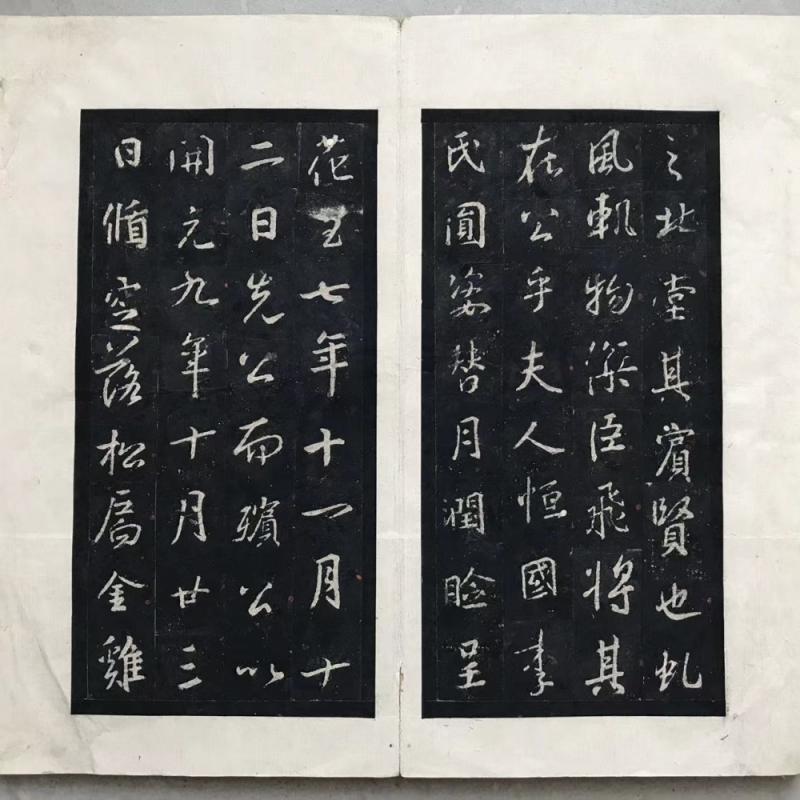 之北堂其賓賢也虬
風軌物臣飛將其
在公乎夫人恒國李
氏圓姿替月潤臉呈
花七年十一月十
二日先公而殯公以
開元九年十月廿三
日循窆落松扃金雞